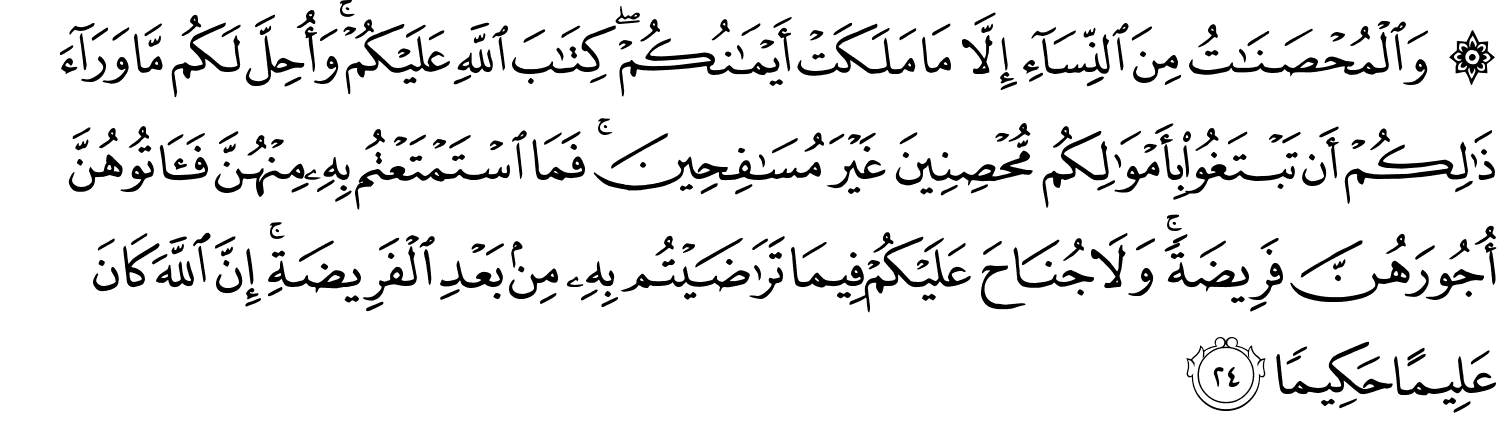 ۞ وَٱلْمُحْصَنَـٰتُ مِنَ ٱلنِّسَآءِ إِلَّا مَا مَلَكَتْ أَيْمَـٰنُكُمْ ۖ كِتَـٰبَ ٱللَّهِ عَلَيْكُمْ ۚ وَأُحِلَّ لَكُم مَّا وَرَآءَ
ذَٰلِكُمْ أَن تَبْتَغُوا۟ بِأَمْوَٰلِكُم مُّحْصِنِينَ غَيْرَ مُسَـٰفِحِينَ ۚ فَمَا ٱسْتَمْتَعْتُم بِهِۦ مِنْهُنَّ فَـَٔاتُوهُنَّ
أُجُورَهُنَّ فَرِيضَةً ۚ وَلَا جُنَاحَ عَلَيْكُمْ فِيمَا تَرَٰضَيْتُم بِهِۦ مِنۢ بَعْدِ ٱلْفَرِيضَةِ ۚ إِنَّ ٱللَّهَ كَانَ
عَلِيمًا حَكِيمًا ٢٤